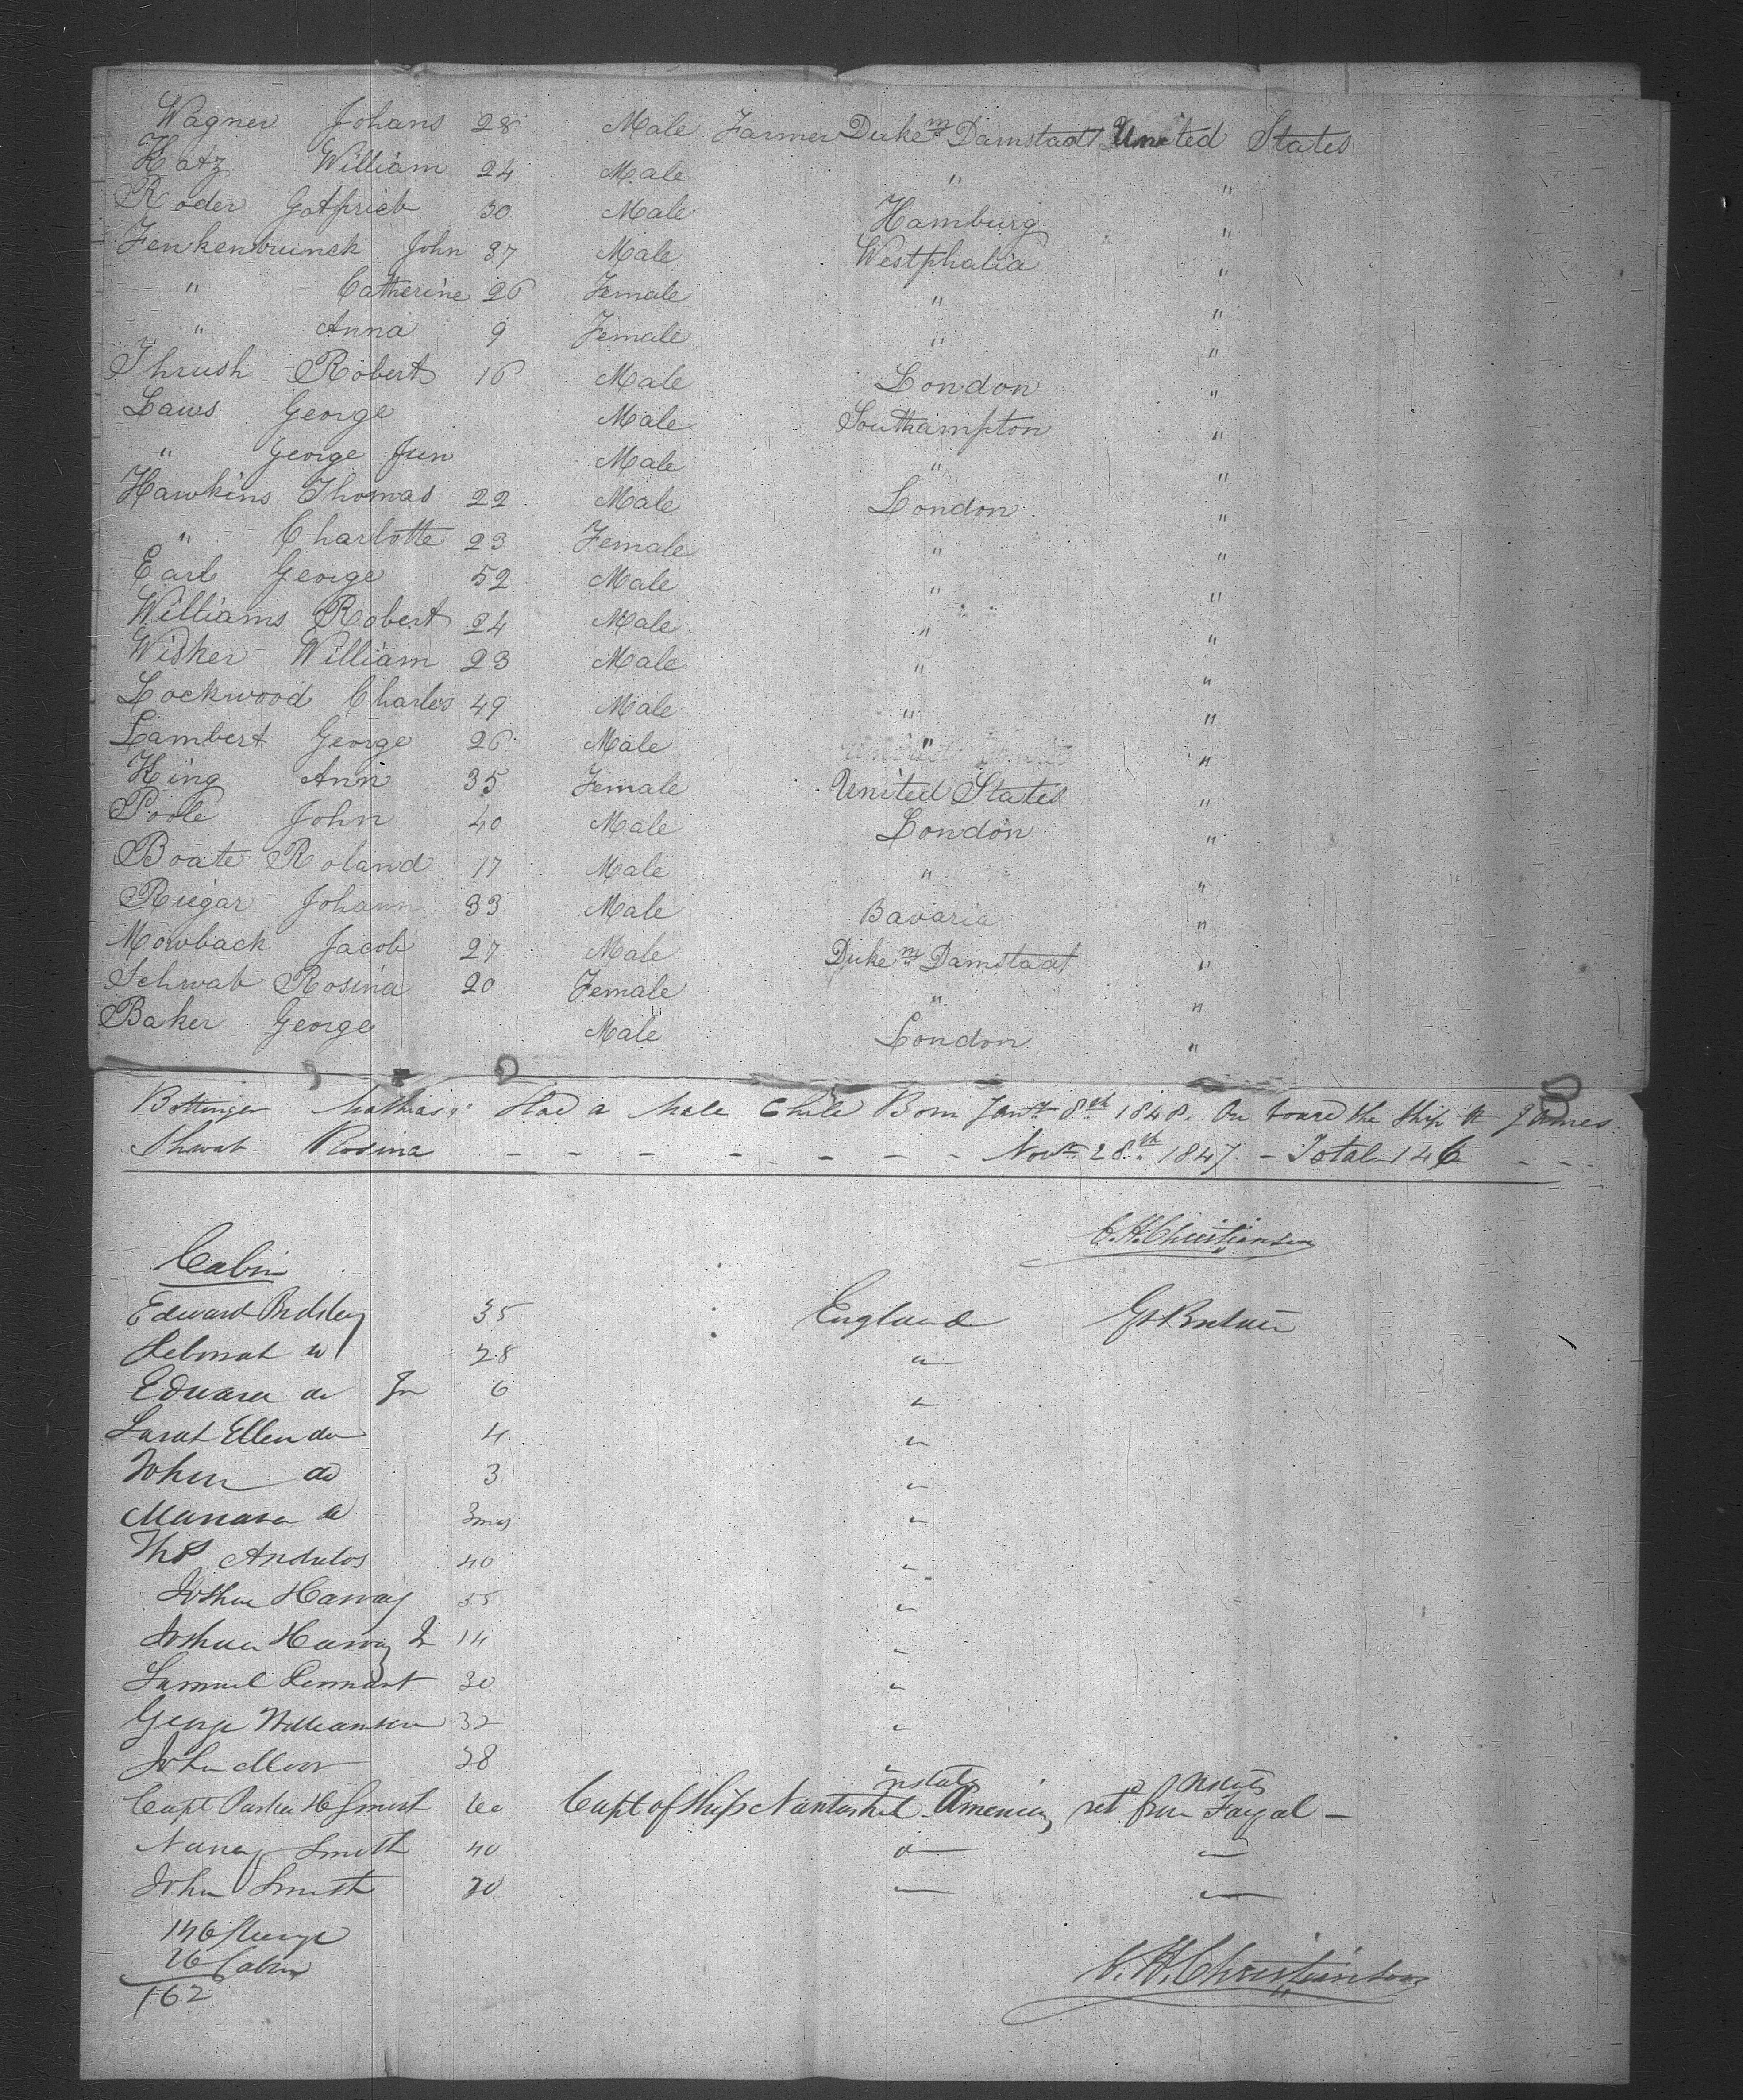 Wagner Johans 28 Male Farmer Duke m Damstadt United States
Katz William 24 Male " "
Roder Gotfrieb 30 Male Hamburg "
Fenkenbrinck John 37 Male Westphalia "
" Catherine 26 Female " "
" Anna 9 Female " "
Thrush Robert 16 Male London "
Laws George Male Southampton "
" George Jun Male " "
Hawkins Thomas 22 Male London "
" Charlotte 23 Female " "
Earl George 52 Male " "
Williams Robert 24 Male " "
Wisker William 23 Male " "
Lockwood Charles 49 Male " "
Lambert George 26 Male " "
King Ann 35 Female United States "
Poole John 40 Male London "
Boate Roland 17 Male " "
Rugar Johann 33 Male Bavaria "
Mowback Jacob 27 Male Duke m Damstaat "
Schwab Rosina 20 Female " "
Baker George Male London "
Bottinger Mathias: Had a Male Child Born Jany 8th 1848. On board the Ship St James.
Shwab Rosina - - - - - - - - Novr 28th 1847. - Total 146 - - -
C. H. Christianson
Cabin
Edward 35 England Gt Britain
28 "
Edward do Jr 6 "
Sarah Ellen do 4 "
John do 3 "
do 3 mos "
Ths 40 "
Joshua 35 "
Joshua Jr 14 "
Samuel 30 "
George Williamson 32 "
John Moor 28 "
Capt H Smith 60 Capt of Ship American ret from Fayal -
Nancy Smith 40 " "
John Smith "
146 Steerage
16 Cabin
162
C. H. Christianson